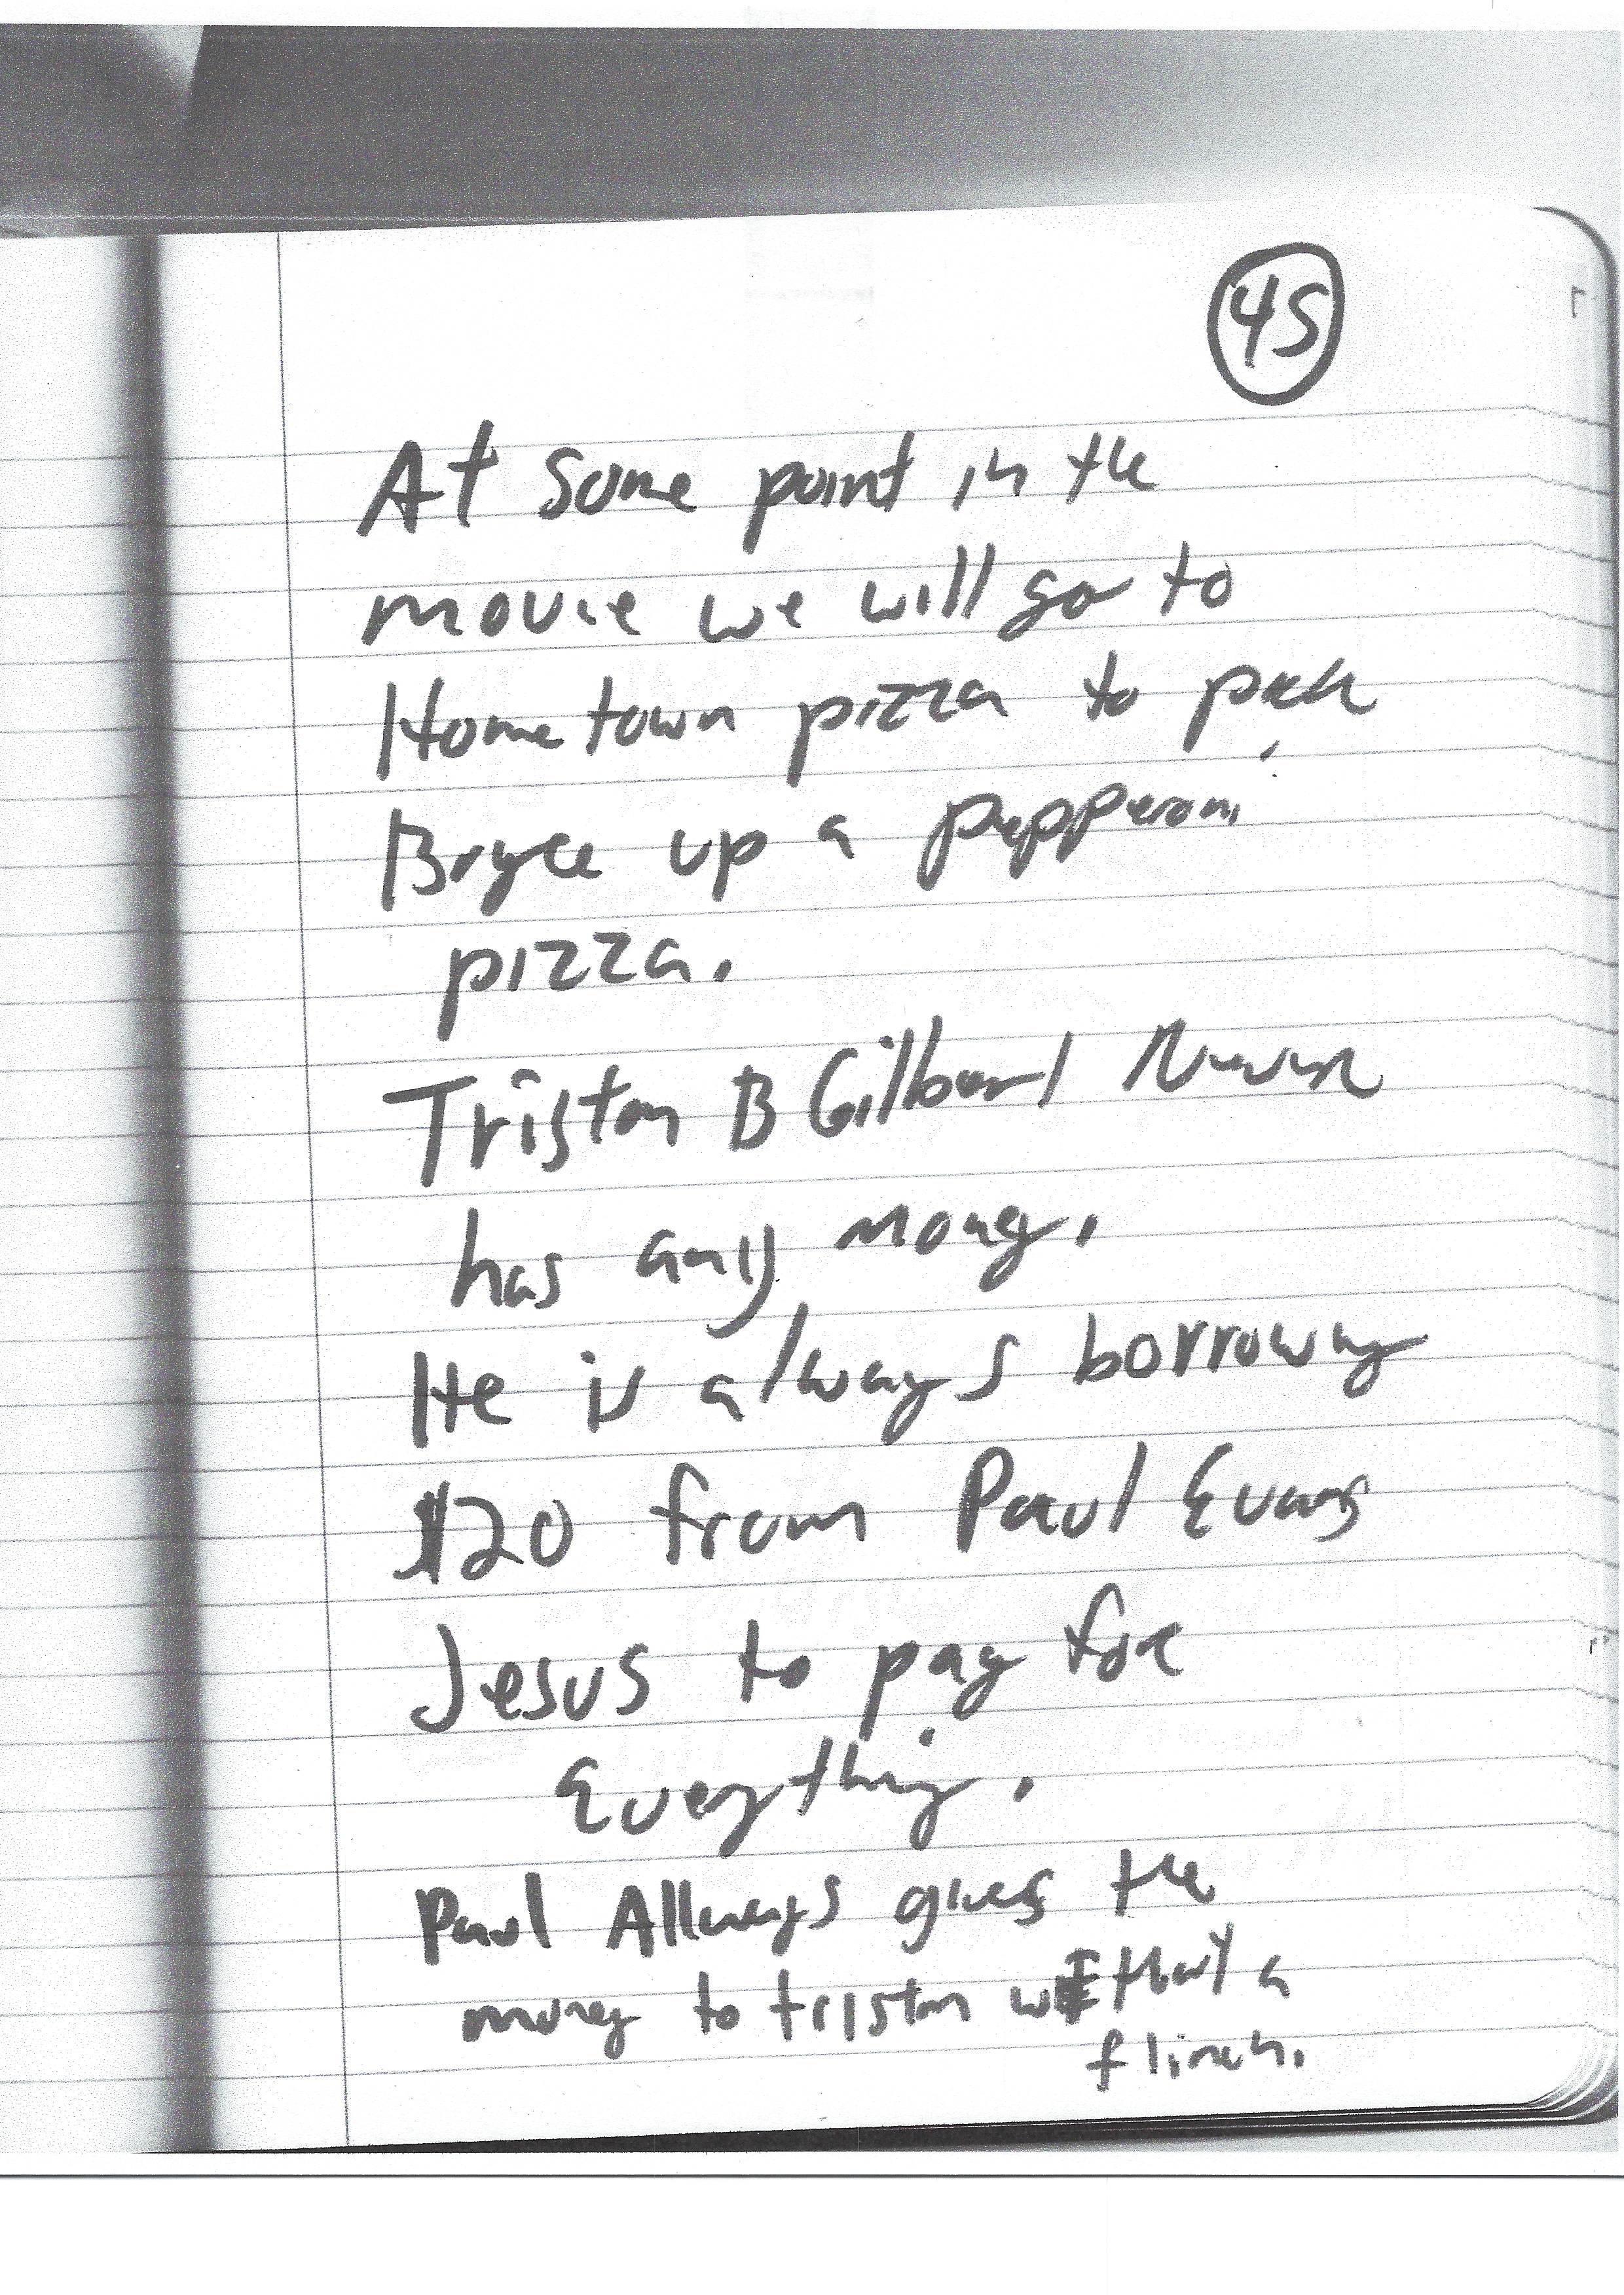 45
At some point in the
movie we will go to
Hometown pizza to pick
Bryce up a pepperoni
pizza.
Tristan B Gilbert Never
has any money.
He is always borrowing
$20 from Paul Evans
Jesus to pay for
Everything.
Paul Allways gives the
money to tristan without a
flinch.